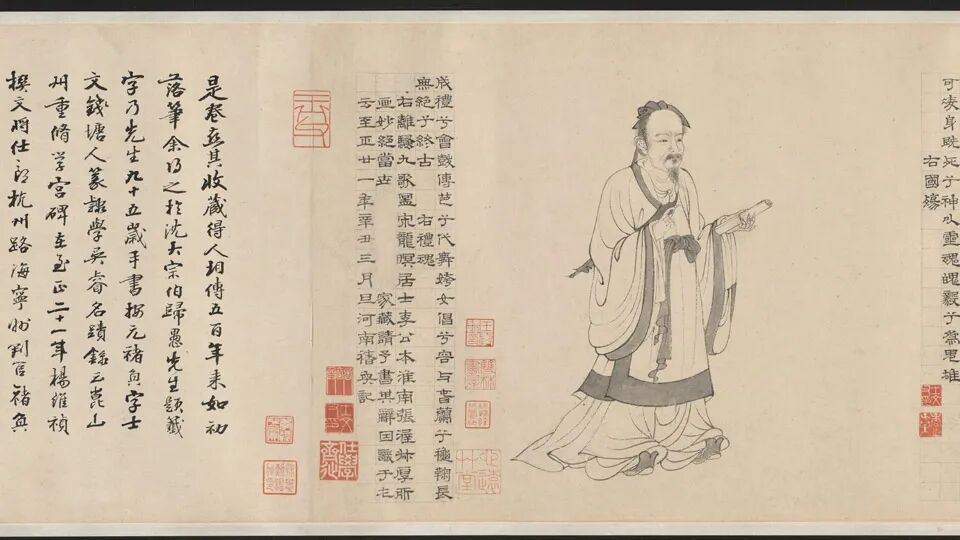 可凌身既死兮神以靈魂魄毅兮為鬼雄
右國殤
成禮兮會鼓傳芭兮代舞姱女倡兮容與春蘭兮秋鞠長
無絕兮終古 右禮魂
右離騷九歌圖宋龍眠居士李公本淮南張渥叔厚所
画妙絕當世 家藏請予書其辭因識于左
云至正廿一年辛丑三月旦河南褚奐記
是卷亦其收藏得人相傳五百年來如初
落筆余得之於沈大宗伯歸愚先生題籤
字乃先生九十五歲手書按元褚奐字士
文錢塘人篆隸學吳睿名蹟錄云崑山
州重脩學宮碑在至正二十一年楊維禎
撰文將仕郎杭州路海寧州判官褚奐